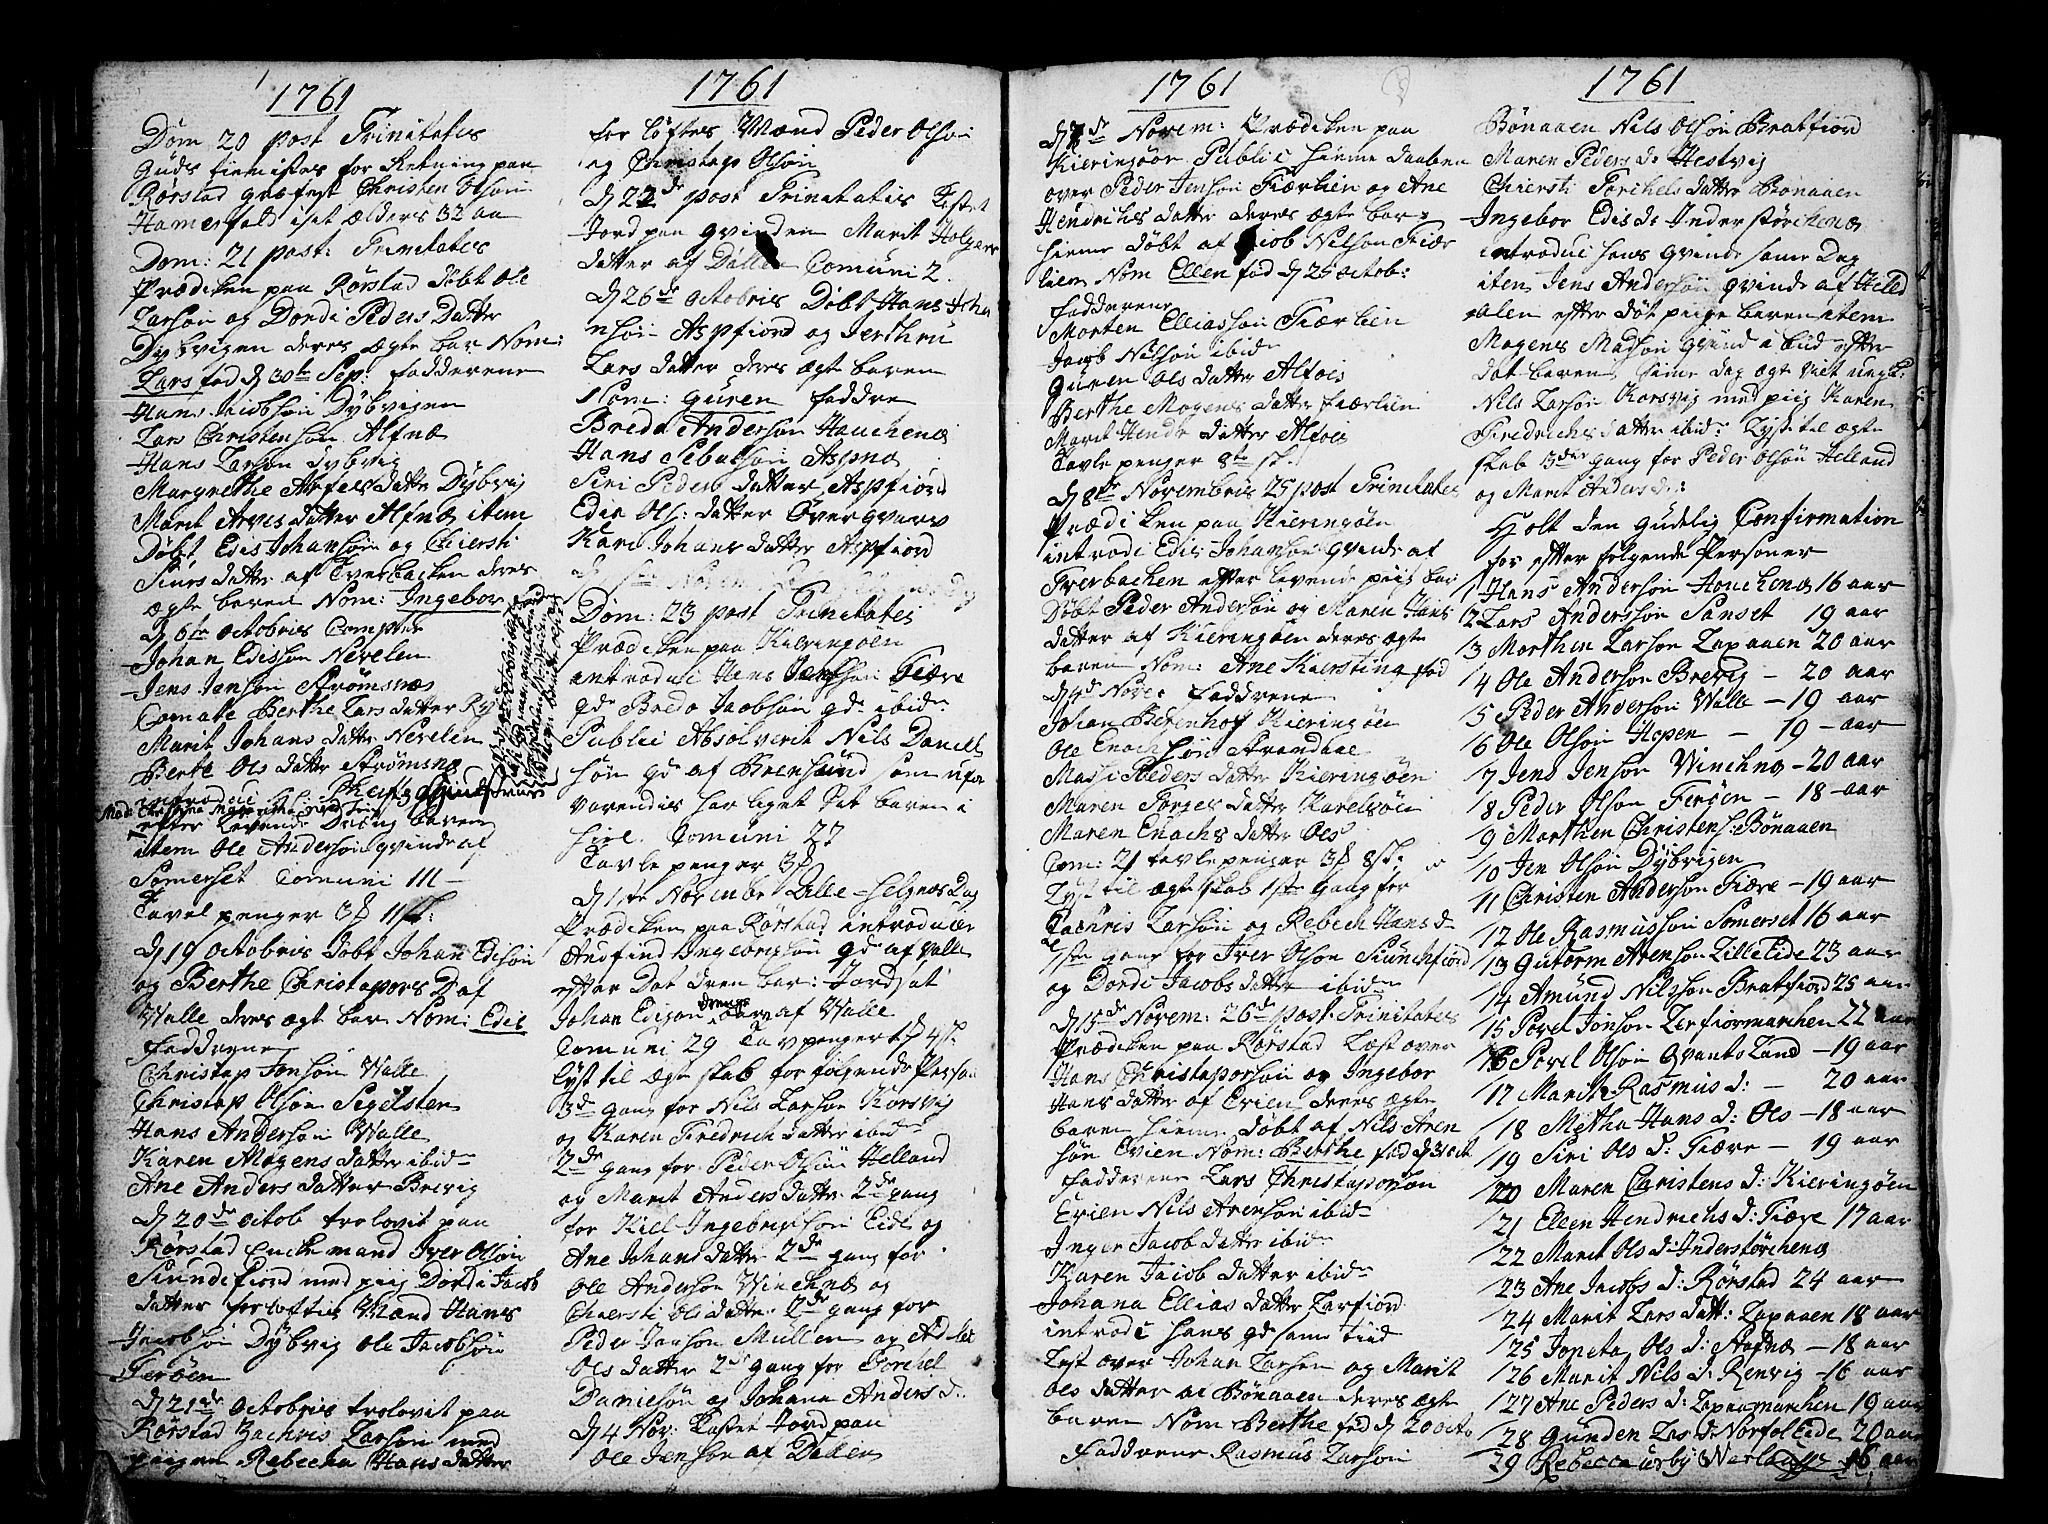 1761
Dom 20 post Trinitatis
Guds tienistes for Retning paa
Rørstad græfest Christen Olsøn
Hamerfald i set ælders 32 aa
Dom: 21 post: Trinitatis
Prædiken paa Rørstad Døbt Ole
Larsøn og Dordi Peders Datter
Dybvigen deres ægte bar Nom:
Lars fød d 30te Sep: fadderene
Hans Jacobsøn Dybvigen
Lars Christensøn Alfnæ
Hans Larsøn Dybvig
Margrethe Arfes datte Dybvig
Marit Arves datter Alfnæ item
Døbt Edis Johansøn og Chiersti
Siurs datte af Tverbacken deres
ægte baren Nom: Ingebor
d 6te octobris Compter
Johan Edissøn Nevelen
Jens Jensøn Strømsnæs
Comate Berthe Lars datter
Marit Johans datte Nevelen
Berte Ols datte Strømsnæ
efter Levende Dreng baren
item Ole Andersøn qvinde af
Somerset Comuni 111
Tavel penger 3f 11sk:
d 19 octobris Døbt Johan Edisøn
og Berthe Christaphors D af
Valle deres ægt bar Nom: Edis
faddrene
Christap Jonsøn Valle
Christap Olsøn Segelsten
Hans Andersøn Valle
Karen Mogens datte ibid
Ane Anders datter Brevig
d 20de octob trolovit paa
Rørstad Enckemand Iver Olsøn
Siundifiord med piig Dordi Jacob
datter forloftis Mænd Hans
Jacobsøn Dybvig Ole Jacobsøn
Ferøen
d 21de octobris trolovit paa
Rørstad Zachris Larsøn med
piigen Rebecha Hans datter
1761
for løftes Mænd Peder Olsøn
og Christap Olsøn
d 22de post Trinitatis Kastet
Jord paa qvinden Marit Holgers
datter af Dallen Comuni 2
d 26de octobris Døbt Hans Joha
nsøn Aspfiord og Jerthru
Lars datter deres ægte baren
Nom: Guren faddre
Breda Andersøn Hauchenæ
Hans Sebulsøn Aspnæ
Siri Peders datter Aspfiord
Edis Ols: datter Overqvarv
Kari Johans datter Aspfiord
Dom: 23 post Trinitatis
Prædiken paa Kieringøen
introduci Hans Jensøn Fiære
qd Bredo Jacobsøn qd ibid
Publici Absolverit Nils Daniel
søn qd af Brensund som ufor
varendis har liget Set baren i
hiel. Comuni 27
Tavle penger 3f
d 1te November Lille Helgnes Dag
Prædiken paa Rørstad introducer
Andfind Ingebrigtsøn qd af Valle
efter Døt dren bar: Jordsat
Johan Edison drengs barn af Valle
Comuni 29 Tavpenger 1f 4sk
lyst til ægteskab for følgende Person
3de gang for Nils Larsøn Korsvig
og Karen Fredrich datte ibid
2de gang for Peder Olsøn Helland
og Marit Anders datte 2de gang
for Kiel Ingebrigtsøn Eide og
Ane Johans datte 2de gang for
Ole Andersøn Winchnæ og
Chiersti Ols datte: 2de gang for
Peder Jansøn Mullen og
Ols datter 2de gang for Torchel
Danielsøn og Johana Anders d.
d 4 Nov: Kastet Jord paa
Ole Jensøn af Dallen
1761
d 7de Novem: Prædiken paa
Kieringøør Public hieme daaben
over Peder Jensøn Fiærlien og Ane
Hendrichs datter deres ægte bar
hieme døbt af Jacob Nilsøn Fiær
lien Nom Ellen fød d 25 octob:
fadderene
Morten Elliassøn Fiærlien
Jacob Nilsøn ibid
Guren Ols datter Alfois
Berthe Mogens datter Fiærlien
Marit Hendr datter Alfois
Tavle penger 8te sk.
d 8de Novembris 25 post Trinitatis
Prædiken paa Kieringøen
introdi Edis Johansøn qvinde af
Tverbachen efter levende piig bar
Døbt Peder Andersøn og Maren Hans
datter af Kieringøen deres ægte
baren Nom: Ane Kierstina fød
d 4de Nove: faddrene
Johan Berenhof Kieringøen
Ole Enochsøn Strandaae
Massi Peders datter Kieringøen
Maren Torges datter Karelsøen
Maren Enochs datter Ols
Com: 21 tavlepenger 3f 8sk.
Lyst til ægteskab 1ste gang for
Zachris Larsøn og Rebech Hans d
1ste gang for Iver Olsøn Siunchfiord
og Dordi Jacobs datter ibid
d 15de Novem: 26de post: Trinitates
Prædiken paa Rørstad Læst over
Hans Christaphorsøn og Ingebor
Hans datter af Evien deres ægte
baren hieme døbt af Nils Aren
søn Evien Nom: Berthe fød d 31 oct
fadderene Lars Christaphorsøn
Evien Nils Arensøn ibid
Inger Jacob datte ibid
Karen Jacob datter ibid
Johana Ellias datter Larfiord
introdi hans qd same tiid
Læst over Johan Larsøn og Marit
Ols datter af Bønaaen deres ægte
baren Nom Berthe fød d 20 octo
Faddrene Rasmus Larsøn
1761
Bønaaen Nils Olsøn Bratfiord
Maren Peders d: Hestvig
Chiersti Torchels datte Bønaaen
Ingebor Edis d: Inderstørchenæ
introduci hans qvinde same Dag
item Jens Andersøn qvinde af Held
alen efter døt piige baren item
Mogens Madsøn qvind a ibid efter
døt baren same dag ægte viet ungk:
Nils Larsøn Korsvig med piig Karen
Fredrichs datter ibid: Lyst til ægte
skab 3de gang for Peder Olsøn Helland
og Marit Anders d:
Holt den gudelig Confirmation
for efter følgende Personer
1 Hans Andersøn Houchenæ 16 aar
2 Lars Anderssøn Sanset 19 aar
3 Morthen Larsøn Laxaaen 20 aar
4 Ole Andersøn Brevig – 20 aar
5 Peder Andersøn Valle – 19 aar
6 Ole Olsøn Hopen – 19 – aar
7 Jens Jensøn Winchnæ – 20 aar
8 Peder Olsøn Ferøen – 18 – aar
9 Morthen Christens: Bønaaen
10 Jen Olsøn Dybvigen
11 Christen Andersøn Fiære – 19 aar
12 Ole Rasmussøn Somerset 16 aar
13 Gutorm Arensøn Lille Eide 23 aar
14 Amund Nilssøn Bratfiord 25 aar
15 Povel Jonsøn Lerfiormarchen 22 aar
16 Povel Olsøn Qvants Land – 19 aar
17 Marit Rasmus d: – 20 aar
18 Metha Hans d: Ols – 18 aar
19 Siri Ols d: Fiære – 19 aar
20 Maren Christens d: Kieringøen
21 Ellen Hendrichs d: Fiære 17 aar
22 Marit Ols d: Inderstørchenæ
23 Ane Jacobs d: Rørstad 24 aar
24 Marit Lars datt: Laxaaen 18 aar
25 Joneta Ols d: Alfnæ – 18 aar
26 Marit Nils d: Renvig – 16 aar
27 Ane Peders d: Laxaamarchen 19 aar
28 Gunden Las d: Norfol Eide 20 aar
29 Rebecca urby 16 aar